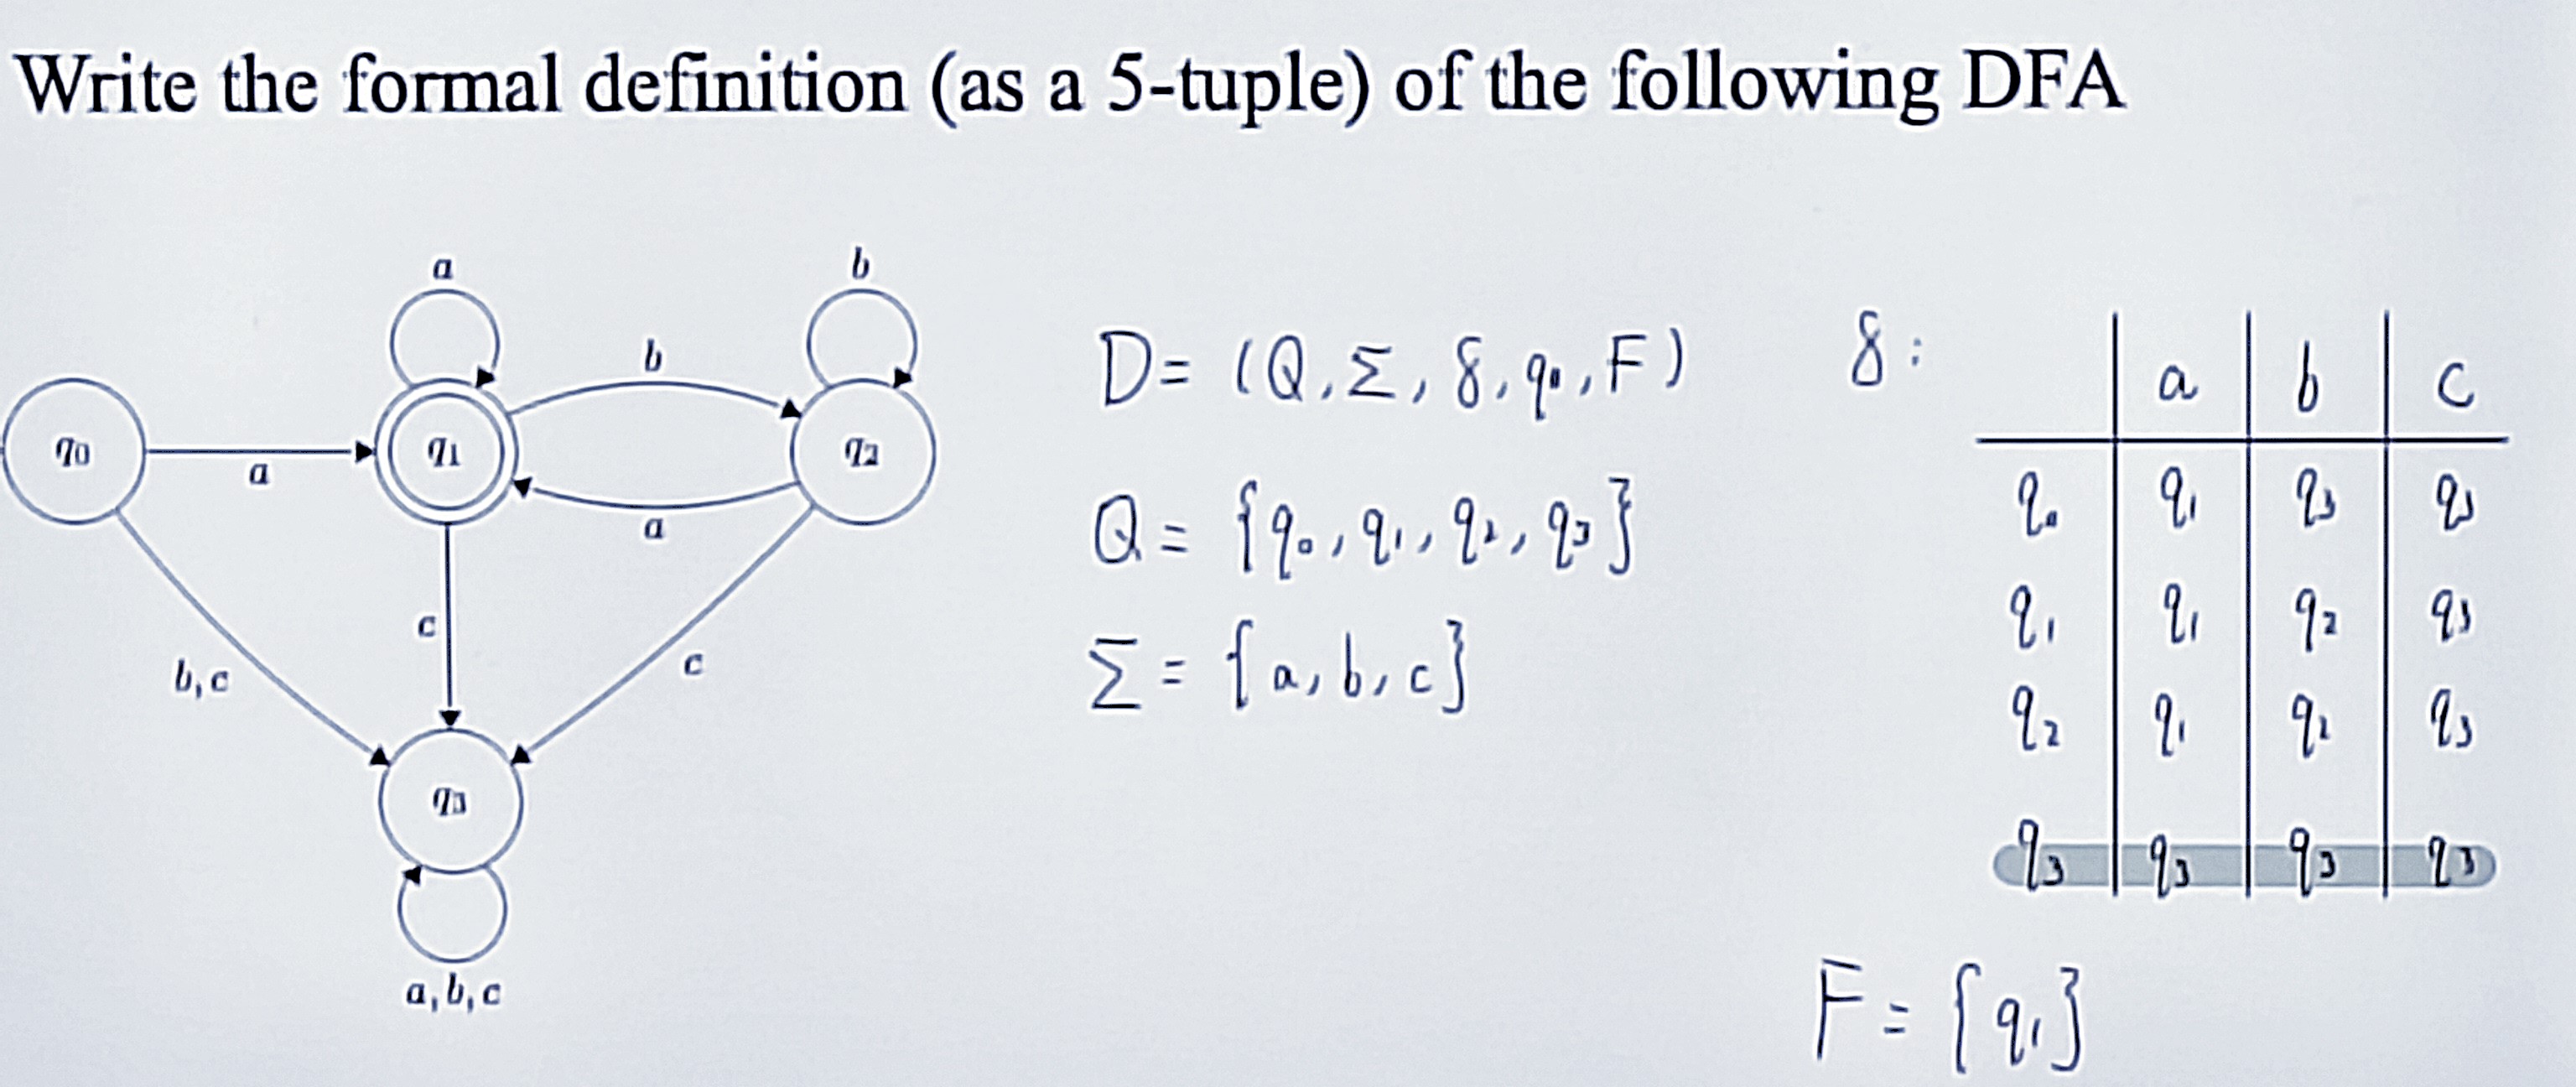 Write the formal definition (as a 5-tuple) of the following DFA
a
b
b
q0
a
q1
a
q2
c
c
b, c
q3
a, b, c
D = (Q, Σ, δ, q₀, F)
Q = {q₀, q₁, q₂, q₃}
Σ = {a, b, c}
δ:
a b c
q₀ q₁ q₃ q₃
q₁ q₁ q₂ q₃
q₂ q₁ q₂ q₃
q₃ q₃ q₃ q₃
F = {q₁}